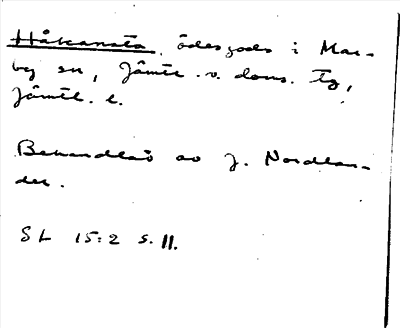 Håkansta, ödesgods i Mar-
by sn, Jämtl. v. doms. tg,
Jämtl. l.
Behandlas av J. Nordlan-
der.
SL 15:2 s. 11.